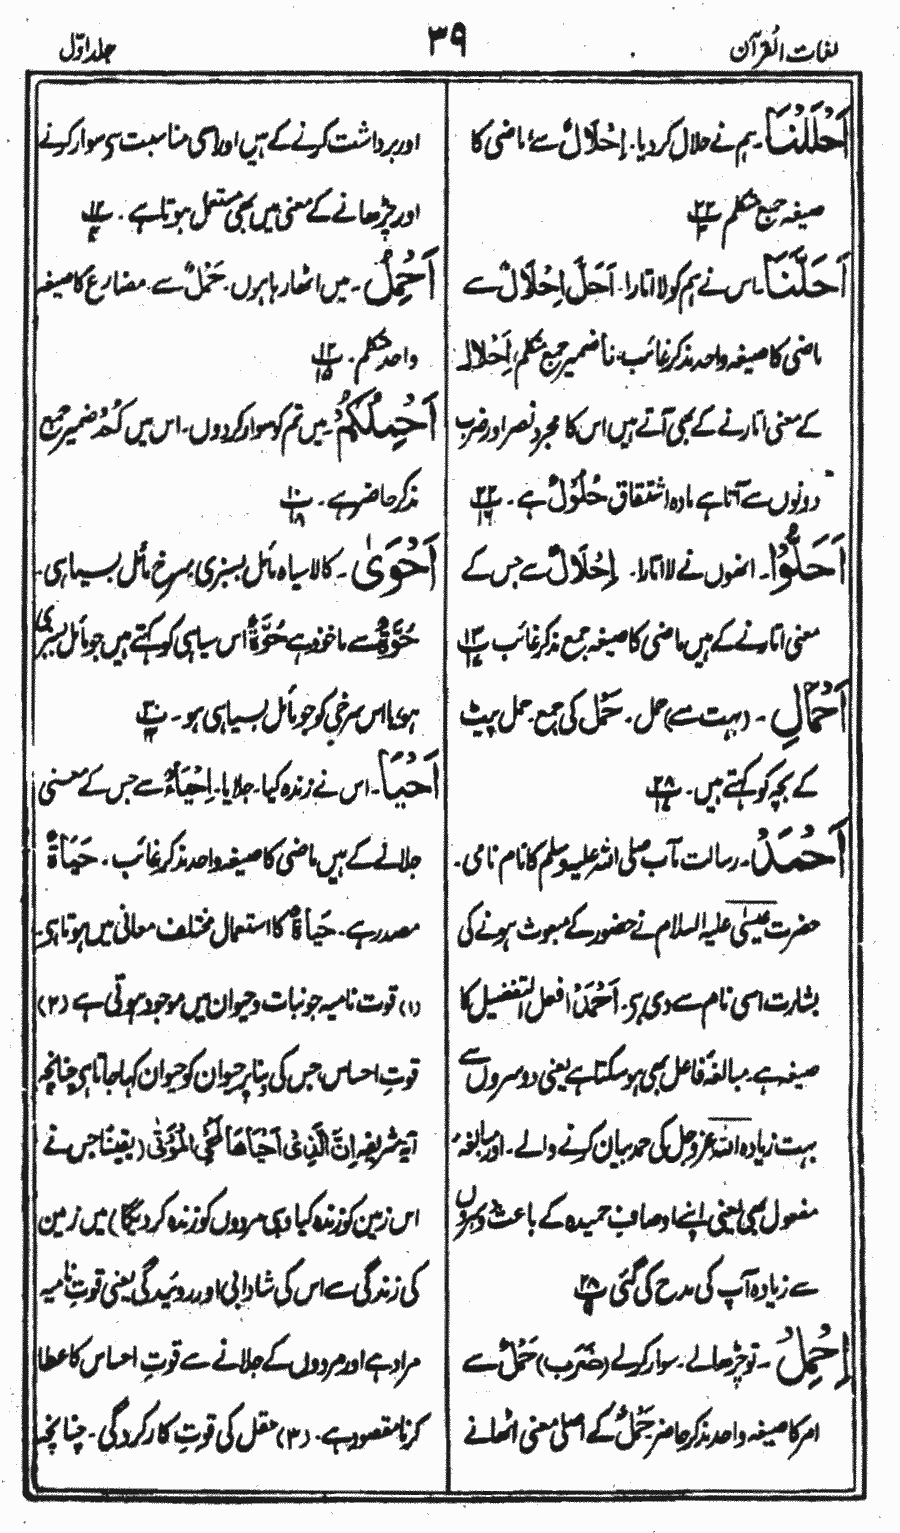 لغات القرآن
۳۹
جلد اوّل
اَحْلَلْنَا۔ ہم نے حلال کردیا۔ اِحْلَالٌ سے ماضی کا
صیغہ جمع متکلم ۲۲
اَحَلَّنَا۔ اس نے ہم کو لا اتارا۔ اَحَلَّ اِحْلَالٌ سے
ماضی کا صیغہ واحد مذکر غائب۔ نا ضمیر جمع متکلم، اِحْلَال
کے معنی اتارنے کے بھی آتے ہیں اس کا مجرد نصر اور ضرب
دونوں سے آتا ہے مادہ اشتقاق حُلُوْلٌ ہے ۔ ۲۲ ۱۶
اَحَلُّوْا۔ انھوں نے لا اتارا۔ اِحْلَالٌ سے جس کے
معنی اتارنے کے ہیں ماضی کا صیغہ جمع مذکر غائب ۱۳
اَحْمَالِ ۔ (بہت سے) حمل ۔ حَمْل کی جمع۔ حمل پیٹ
کے بچہ کو کہتے ہیں۔ ۲۸
اَحْمَدُ۔ رسالت مآب صلی اللہ علیہ وسلم کا نام نامی ۔
حضرت عیسٰی علیہ السلام نے حضور کے مبعوث ہونے کی
بشارت اسی نام سے دی ہی۔ اَحْمَدُ افعل التفضیل کا
صیغہ ہے۔ مبالغۂ فاعل بھی ہوسکتا ہے یعنی دوسروں سے
بہت زیادہ اللہ عزوجل کی حمد بیان کرنے والے۔ اور مبالغہ
مفعول بھی یعنی اپنے اوصاف حمیدہ کے باعث دوسروں
سے زیادہ آپ کی مدح کی گئی ۲۸
اِحْمِلْ ۔ تو چڑھالے۔ سوار کرلے (ضَرَب) حَمْلٌ سے
امر کا صیغہ واحد مذکر حاضر حَمْلٌ کے اصلی معنی اٹھانے
اور برداشت کرنے کے ہیں اور اسی مناسبت سی سوار کرنے
اور چڑھانے کے معنی میں بھی مستعمل ہوتا ہے ۔ ۱۲
اَحْمِلُ ۔ میں اٹھا رہا ہوں۔ حَمْلٌ سے ۔ مضارع کا صیغہ
واحد متکلم ۔ ۱۲ ۱۵
اَحْمِلُكُمْ ۔ میں تم کو سوار کردوں ۔ اس میں کُمْ ضمیر جمع
مذکر حاضر ہے ۔ ۱۰ ۱۸
اَحْوٰی ۔ کالا سیاہ مائل بسبزی۔ سرخ مائل بسیاہی۔
حُوَّةٌ سے ماخوذ ہے حُوَّةٌ اس سیاہی کو کہتے ہیں جو مائل بسبزی
ہو، یا اس سرخی کو جو مائل بسیاہی ہو ۔ ۳۰
اَحْیَا ۔ اس نے زندہ کیا۔ جلایا۔ اِحْیَاءٌ سے جس کے معنی
جلانے کے ہیں ماضی کا صیغہ واحد مذکر غائب ۔ حَیَاةٌ
مصدر ہے ۔ حَیَاةٌ کا استعمال مختلف معانی میں ہوتا ہی۔
(۱) قوت نامیہ جو نبات و حیوان میں موجود ہوتی ہے (۲)
قوتِ احساس جس کی بنا پر حیوان کو حیوان کہا جاتا ہی چنانچہ
آیۂ شریفہ اِنَّ الَّذِیْ اَحْیَاهَا لَمُحْیِ الْمَوْتٰی (یقیناً جس نے
اس زمین کو زندہ کیا وہی مردوں کو زندہ کر دیگا) میں زمین
کی زندگی سے اس کی شادابی اور روئیدگی یعنی قوتِ نامیہ
مراد ہے اور مردوں کے جلانے سے قوتِ احساس کا عطا
کرنا مقصود ہے ۔ (۳) عقل کی قوتِ کار کردگی ۔ چنانچہ